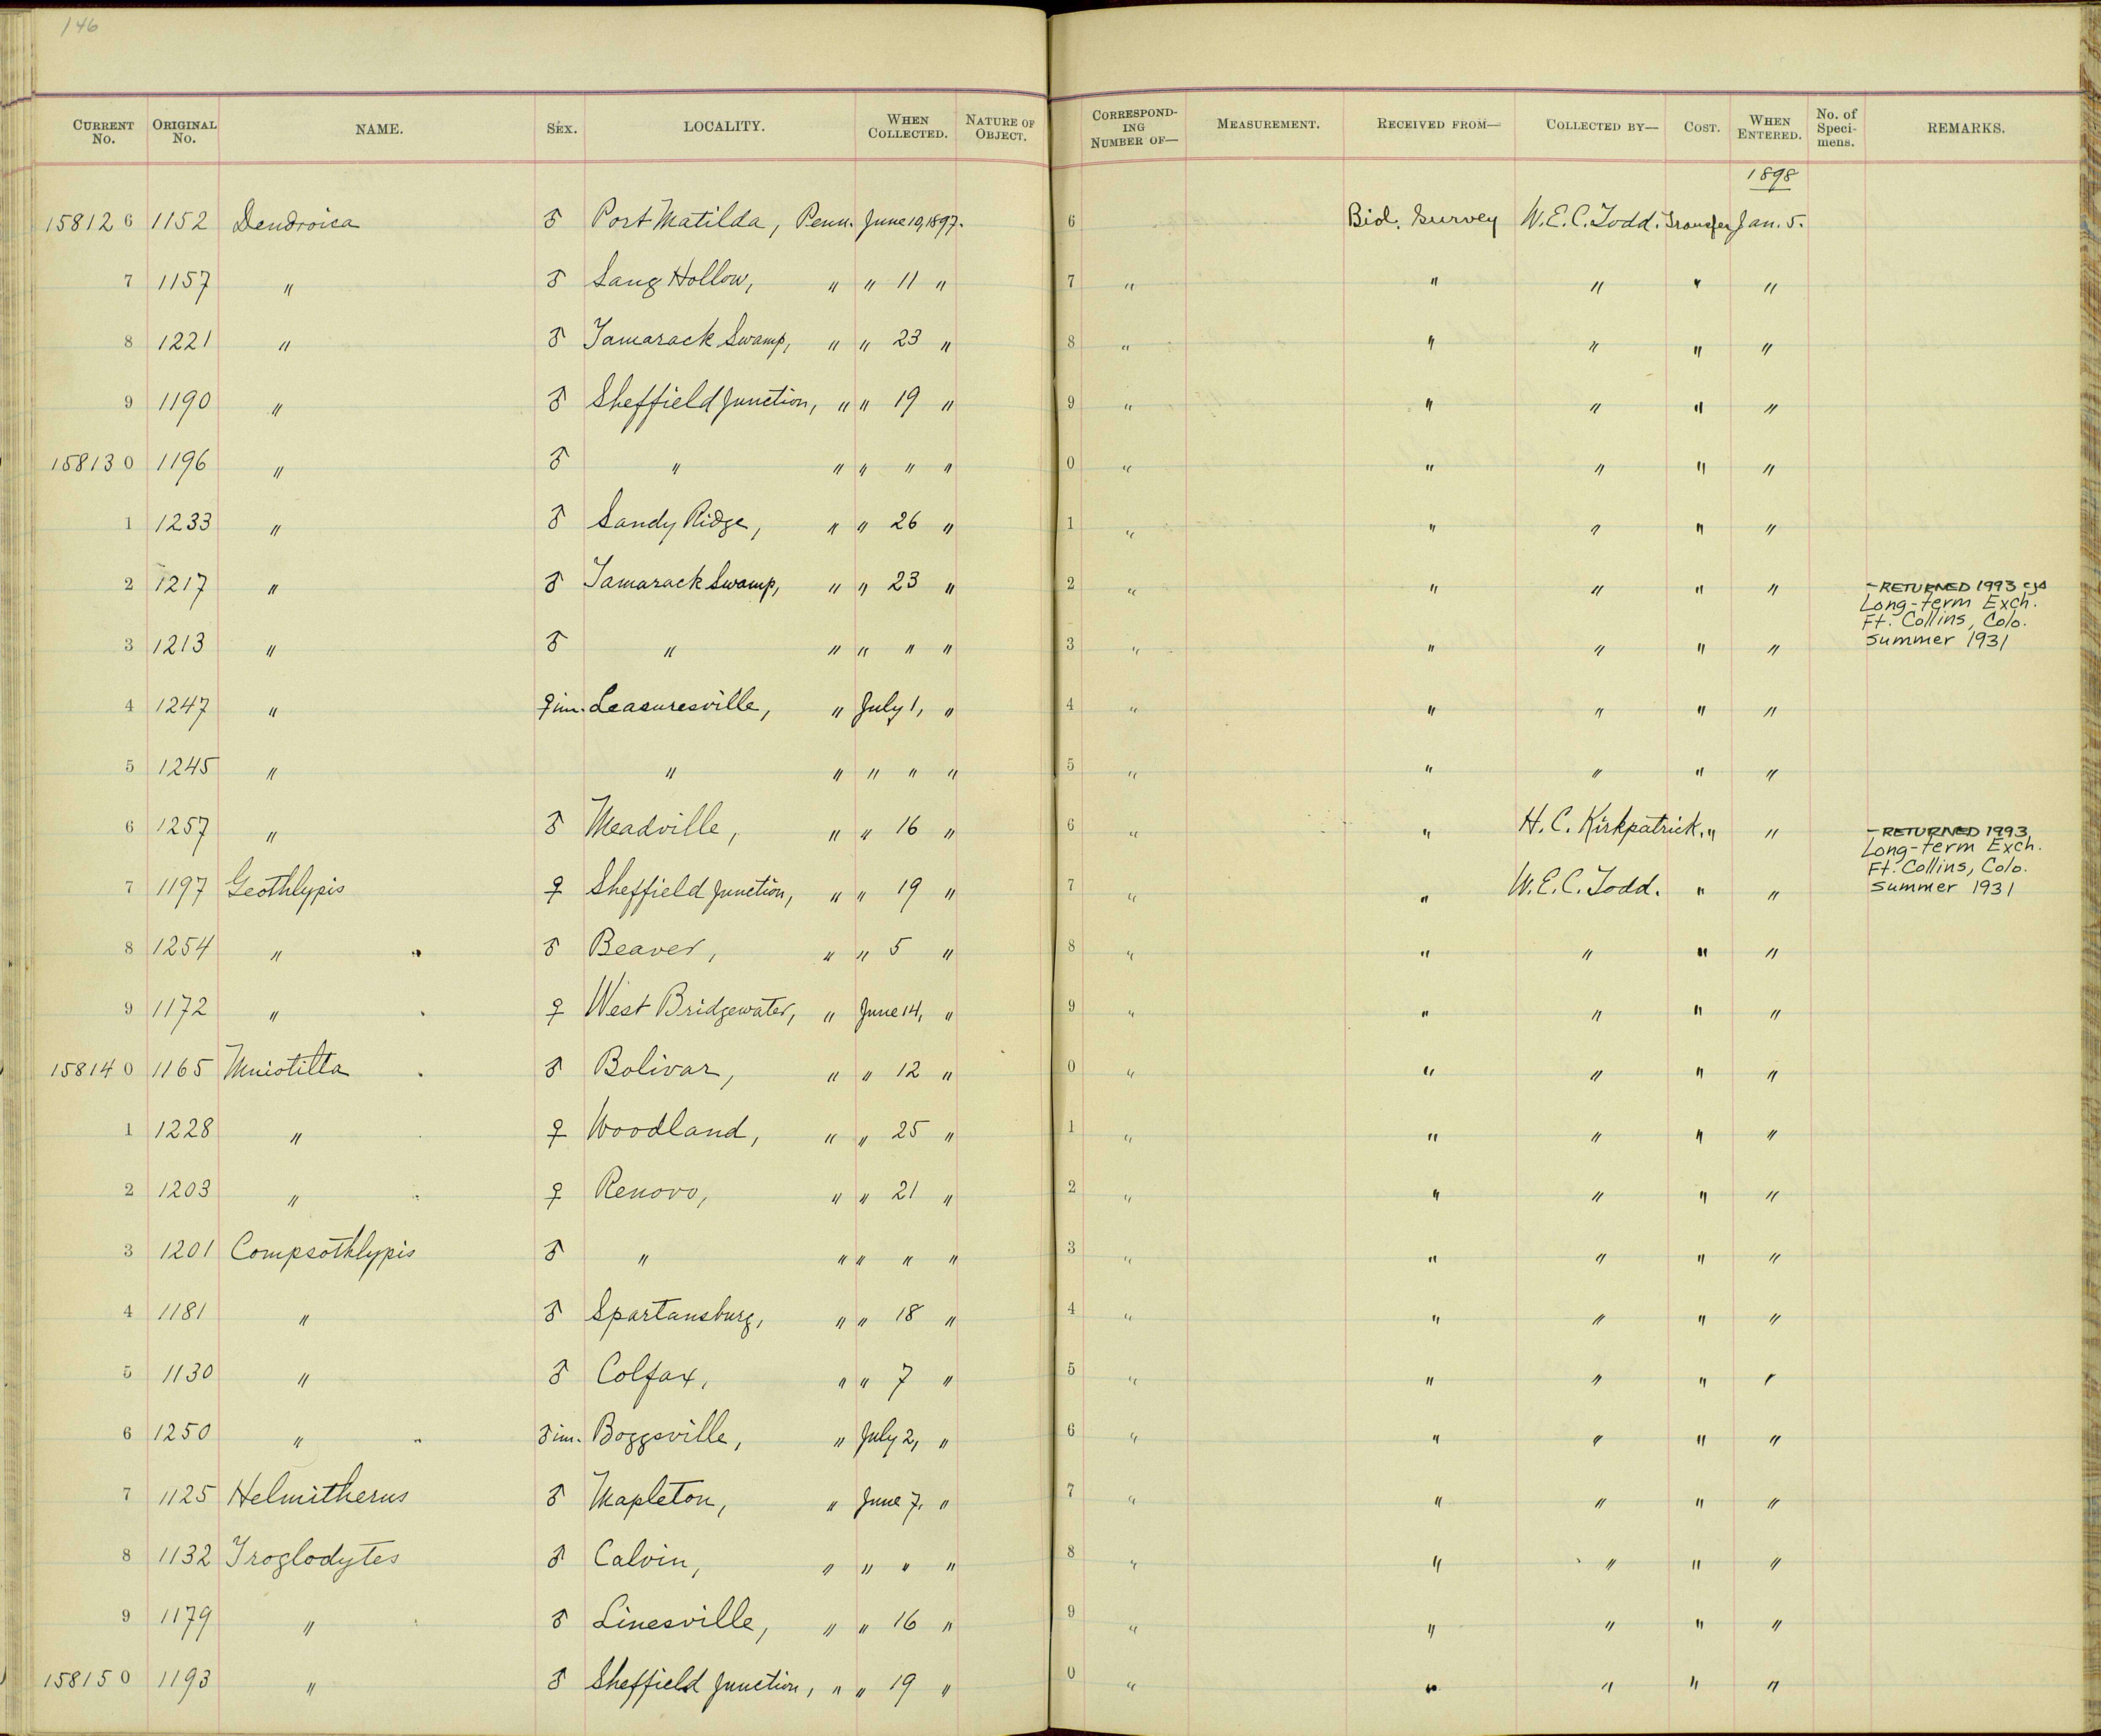 146
CURRENT No. ORIGINAL No. NAME. SEX. LOCALITY. WHEN COLLECTED. NATURE OF OBJECT. CORRESPONDING NUMBER OF— MEASUREMENT. RECEIVED FROM— COLLECTED BY— COST. WHEN ENTERED. No. of Specimens. REMARKS.
1898
158126 1152 Dendroica ♂ Port Matilda, Penn. June 10, 1897. 6 Biol. Survey W.E.C. Todd. Transfer Jan. 5.
7 1157 " ♂ Sang Hollow, " " 11 " 7 " " " " "
8 1221 " ♂ Tamarack Swamp, " " 23 " 8 " " " " "
9 1190 " ♂ Sheffield Junction, " " 19 " 9 " " " " "
158130 1196 " ♂ " " " " " 0 " " " " "
1 1233 " ♂ Sandy Ridge, " " 26 " 1 " " " " "
2 1217 " ♂ Tamarack Swamp, " " 23 " 2 " " " " " - RETURNED 1993 cja
Long-term Exch.
Ft. Collins, Colo.
3 1213 " ♂ " " " " " 3 " " " " " Summer 1931
4 1247 " ♀ im. Leasuresville, " July 1, " 4 " " " " "
5 1245 " " " " " " 5 " " " " "
6 1257 " ♂ Meadville, " " 16 " 6 " " H.C. Kirkpatrick. " " - RETURNED 1993,
Long-term Exch.
Ft. Collins, Colo.
7 1197 Geothlypis ♀ Sheffield Junction, " " 19 " 7 " " W.E.C. Todd. " " Summer 1931
8 1254 " ♂ Beaver, " " 5 " 8 " " " " "
9 1172 " ♀ West Bridgewater, " June 14, " 9 " " " " "
158140 1165 Mniotilta ♂ Bolivar, " " 12 " 0 " " " " "
1 1228 " ♀ Woodland, " " 25 " 1 " " " " "
2 1203 " ♀ Renovo, " " 21 " 2 " " " " "
3 1201 Compsothlypis ♂ " " " " " 3 " " " " "
4 1181 " ♂ Spartansburg, " " 18 " 4 " " " " "
5 1130 " ♂ Colfax, " " 7 " 5 " " " " "
6 1250 " ♂ im. Boggsville, " July 2, " 6 " " " " "
7 1125 Helmitherus ♂ Mapleton, " June 7, " 7 " " " " "
8 1132 Troglodytes ♂ Calvin, " " " " 8 " " " " "
9 1179 " ♂ Linesville, " " 16 " 9 " " " " "
158150 1193 " ♂ Sheffield Junction, " " 19 " 0 " " " " "